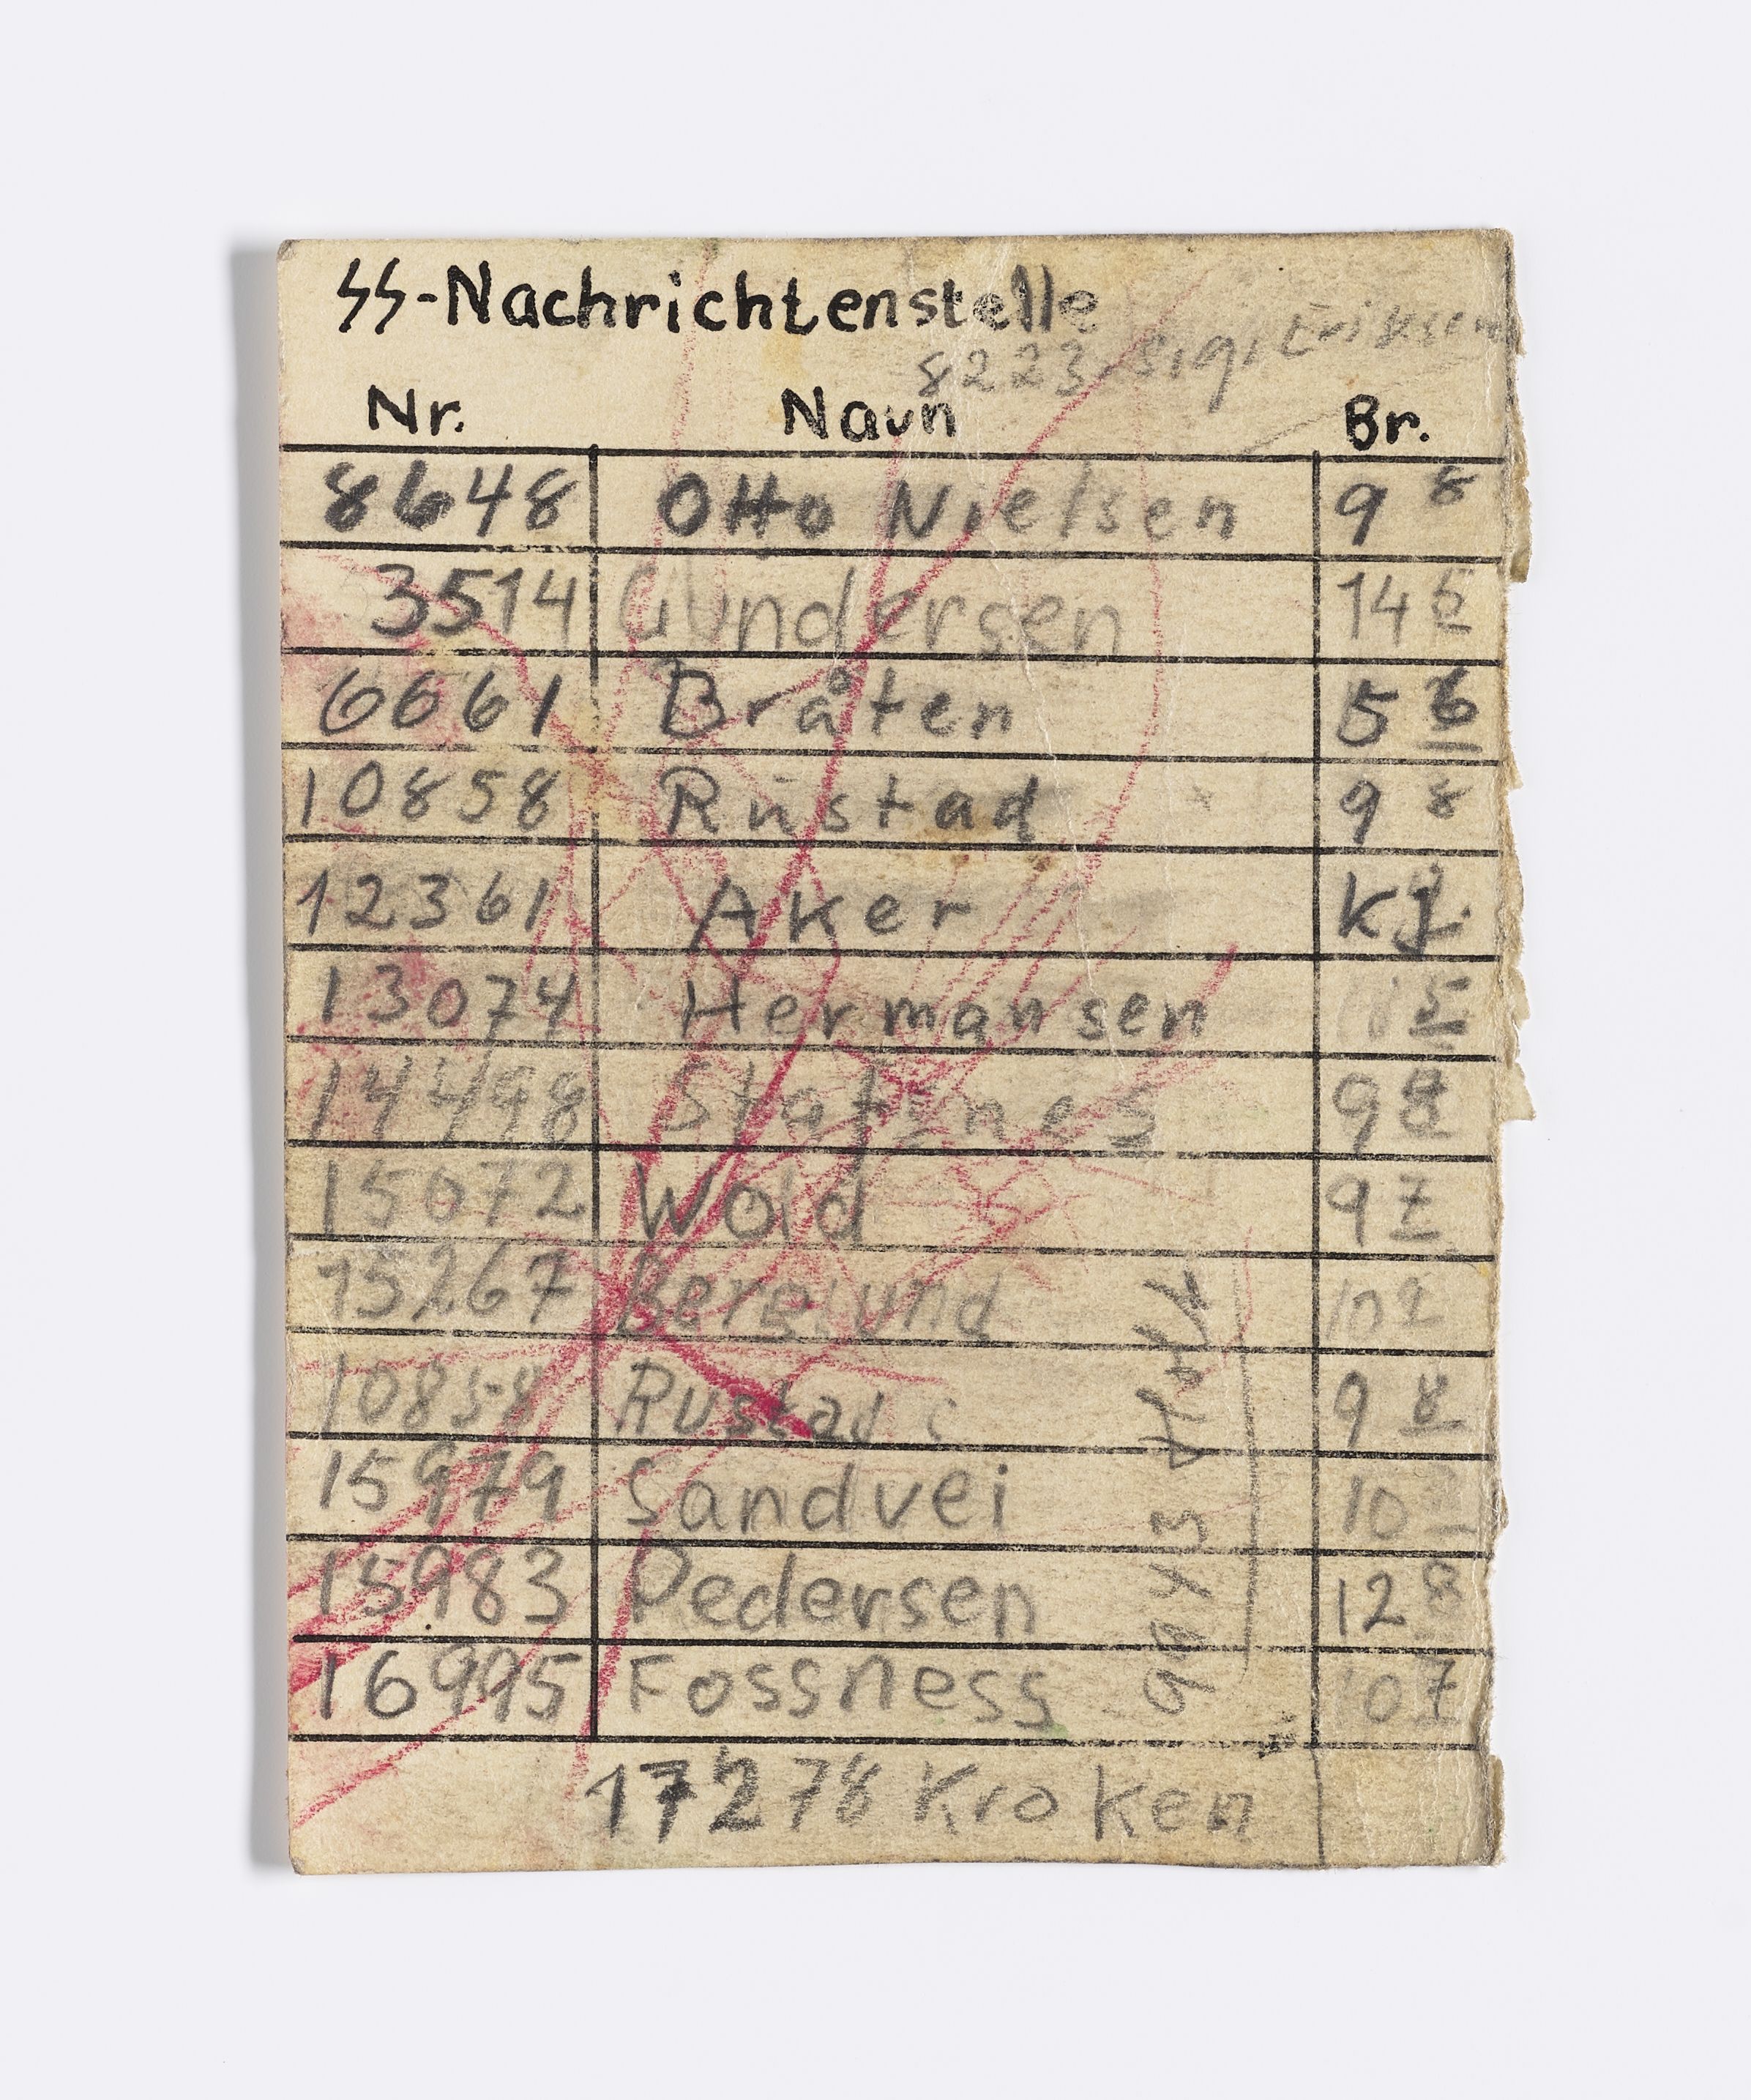 SS-Nachrichtenstelle
8223 Sig. Eriksen
Nr. Navn Br.
8648 Otto Nielsen 9 8
3514 Gundersen 14 5
6661 Bråten 5 6
10858 Rustad 9 8
12361 Aker
13074 Hermansen 5
14498 9 8
15072 Wold 9 7
15267 Berglund
10858 Rustad 9 8
15979 Sandvei 10
15983 Pedersen 12 8
16995 Fossness 10 7
17278 Kroken